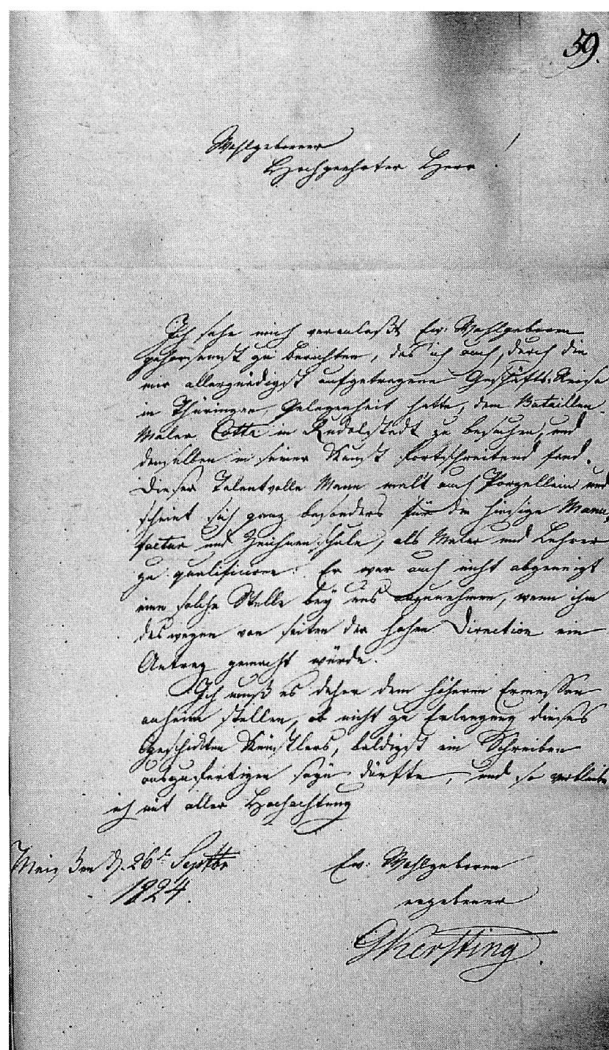 59.
Wohlgeborener
Hochgeehrter Herr!
Ich sehe mich veranlaßt Ew: Wohlgeboren
gehorsamst zu berichten, daß ich auch, durch die
mir allergnädigst aufgetragene Geschäfts-Reise
in Thüringen Gelegenheit hatte, den Bataillen-
Maler Cotta in Rudolstadt zu besuchen, und
denselben in seiner Kunst fortschreitend fand.
Dieser Talentvolle Mann malt auf Porzellain und
scheint sich ganz besonders für die hiesige Manu,
factur und Zeichnenschule, als Maler und Lehrer
zu qualificiren. Er war auch nicht abgeneigt
eine solche Stelle bey uns anzunehmen, wenn ihm
deswegen von seiten der hohen Direction ein
Antrag gemacht würde.
Ich muß es daher dem höherm Ermessen
anheim stellen, ob nicht zu Erlangung dieses
geschickten Künstlers, baldigst ein Schreiben
auszufertigen seyn dürfte, und so verbleibe
ich mit aller Hochachtung
Meißen d. 26t Septbr
1824.
Ew: Wohlgeboren
ergebener
GKersting.